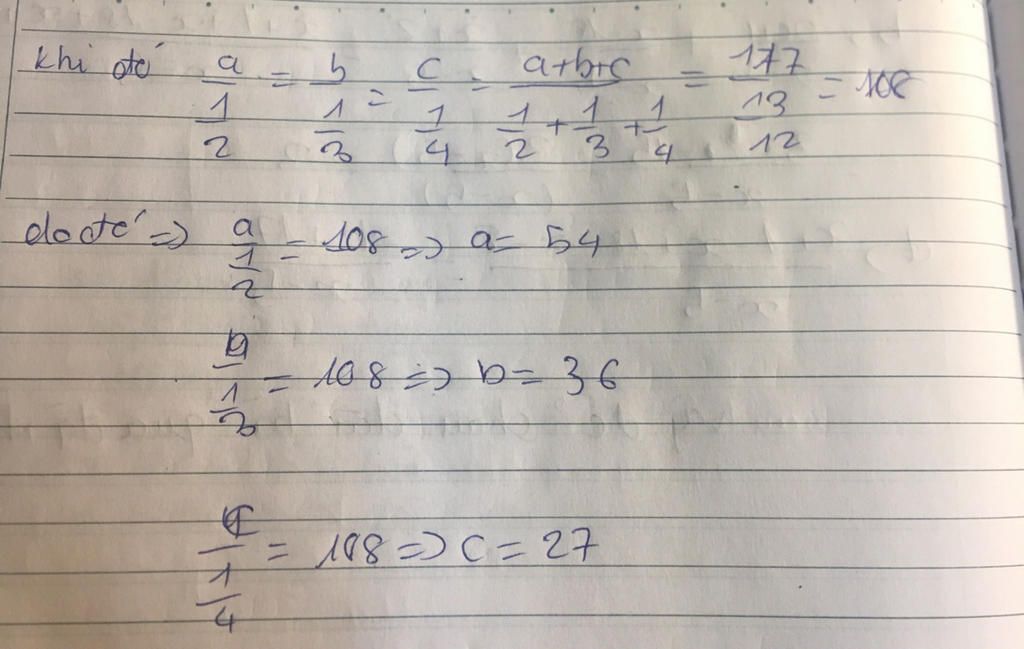 khi đó a/(1/2) = b/(1/3) = c/(1/4) = (a+b+c)/(1/2+1/3+1/4) = 117/(13/12) = 108
do đó => a/(1/2) = 108 => a = 54
b/(1/3) = 108 => b = 36
c/(1/4) = 108 => c = 27